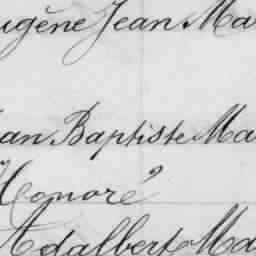 ugène Jean Ma
an Baptiste Ma
Honoré
Adalbert Ma